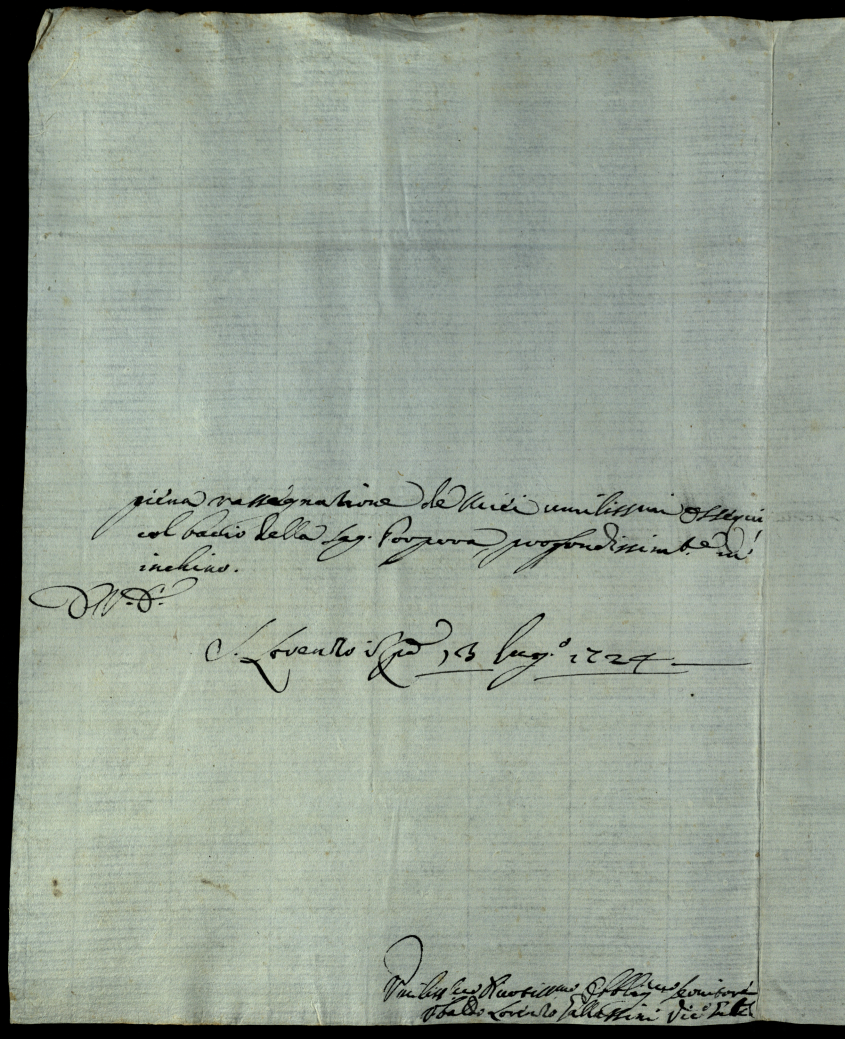 piena rassegnatione de miei umilissimi ossequi
col bacio della Sag. Porpora, profondissimte. m'
inchino.
S. Lorenzo 13 lug.o 1724
Umiliss.mo Devotissimo Obblig.mo Servitore
Ubaldo Lorenzo